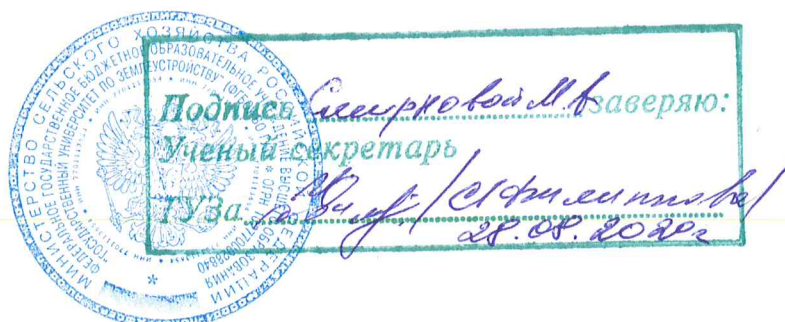 МИНИСТЕРСТВО СЕЛЬСКОГО ХОЗЯЙСТВА РОССИЙСКОЙ ФЕДЕРАЦИИ
ФЕДЕРАЛЬНОЕ ГОСУДАРСТВЕННОЕ БЮДЖЕТНОЕ ОБРАЗОВАТЕЛЬНОЕ УЧРЕЖДЕНИЕ ВЫСШЕГО ОБРАЗОВАНИЯ
"ГОСУДАРСТВЕННЫЙ УНИВЕРСИТЕТ ПО ЗЕМЛЕУСТРОЙСТВУ"
Подпись Смирновой М.В заверяю:
Ученый секретарь
ГУЗа /Филиппова/
28.08.2020г